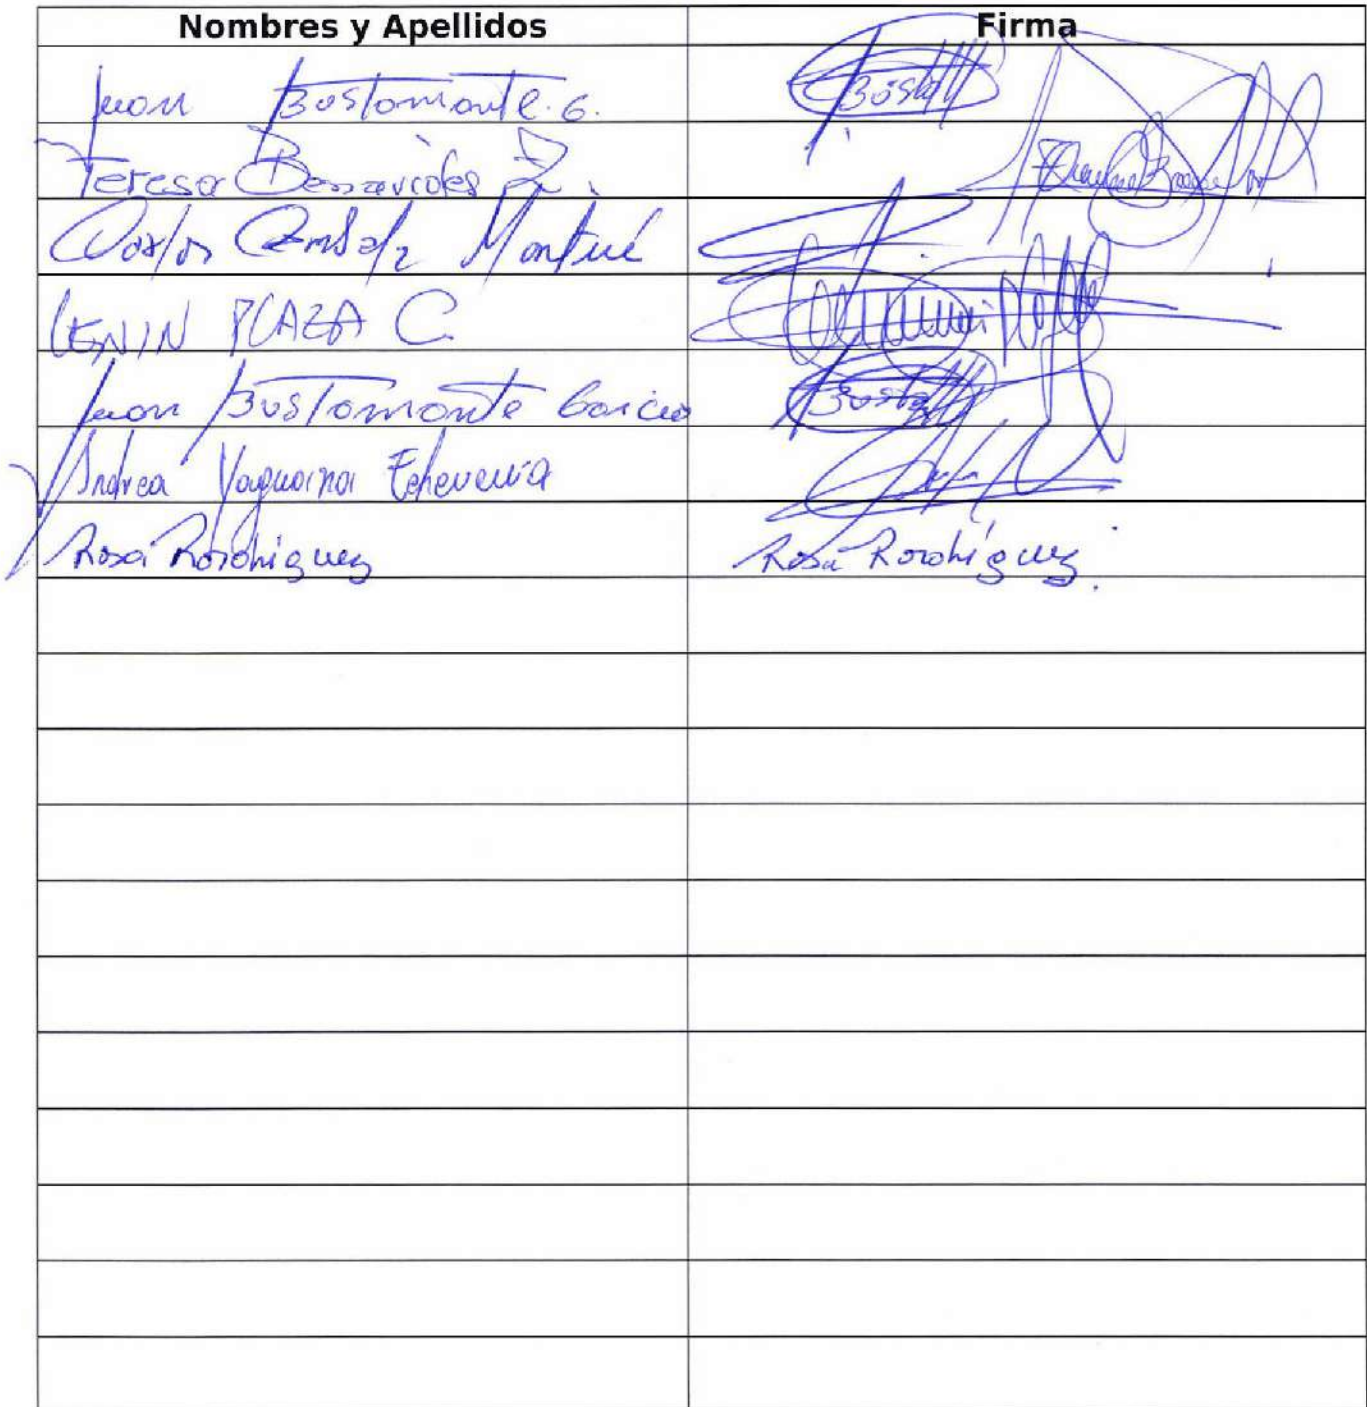 Nombres y Apellidos Firma
Juan Bustamante G. Busta
Teresa Benavides Z.
Carlos González
LENIN PLAZA C.
Juan Bustamante Garcia Busta
Andrea Yaguana Echeverria
Rosa Rodriguez Rosa Rodriguez